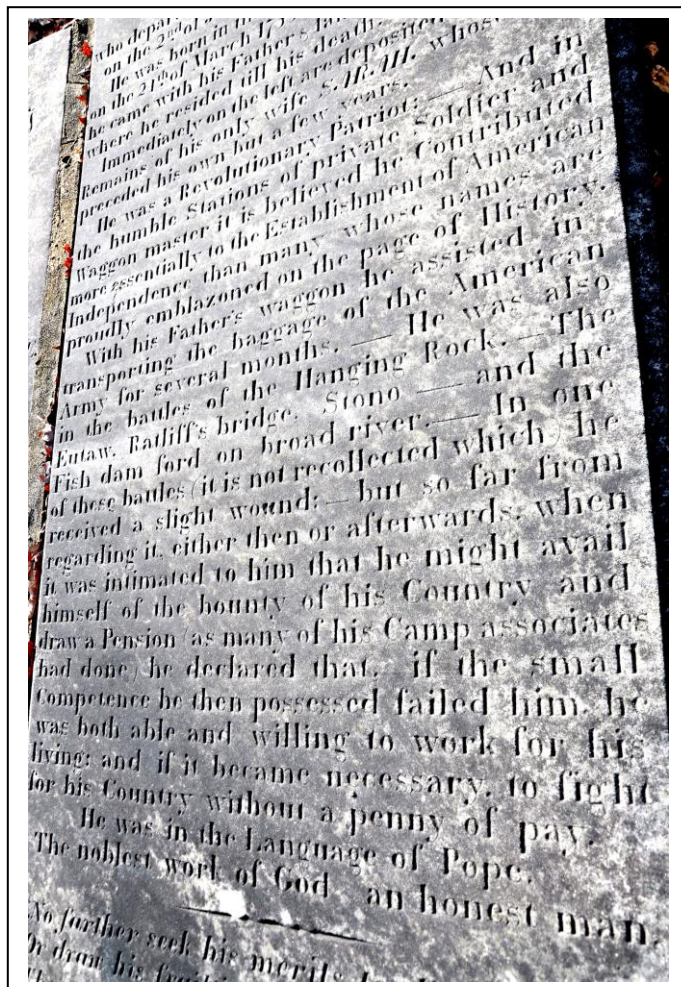 who depar
on the 2nd of
He was born in
on the 21th of March 17
he came with his Father's
where he resided till his death.
Immediately on the left are deposited
Remains of his only wife S. M. whose
preceded his own but a few years.
He was a Revolutionary Patriot: — And in
the humble Stations of private Soldier and
Waggon master it is believed he Contributed
more essentially to the Establishment of American
Independence than many whose names are
proudly emblazoned on the page of History.
With his Father's waggon he assisted in
transporting the baggage of the American
Army for several months. — He was also
in the battles of the Hanging Rock. — The
Eutaw. Ratliff's bridge. Stono — and the
Fish dam ford on broad river. — In one
of these battles (it is not recollected which) he
received a slight wound; — but so far from
regarding it, either then or afterwards, when
it was intimated to him that he might avail
himself of the bounty of his Country and
draw a Pension (as many of his Camp associates
had done) he declared that, if the small
Competence he then possessed failed him, he
was both able and willing to work for his
living; and if it became necessary, to fight
for his Country without a penny of pay.
He was in the Language of Pope.
The noblest work of God an honest man.
No further seek his merits
Or draw his